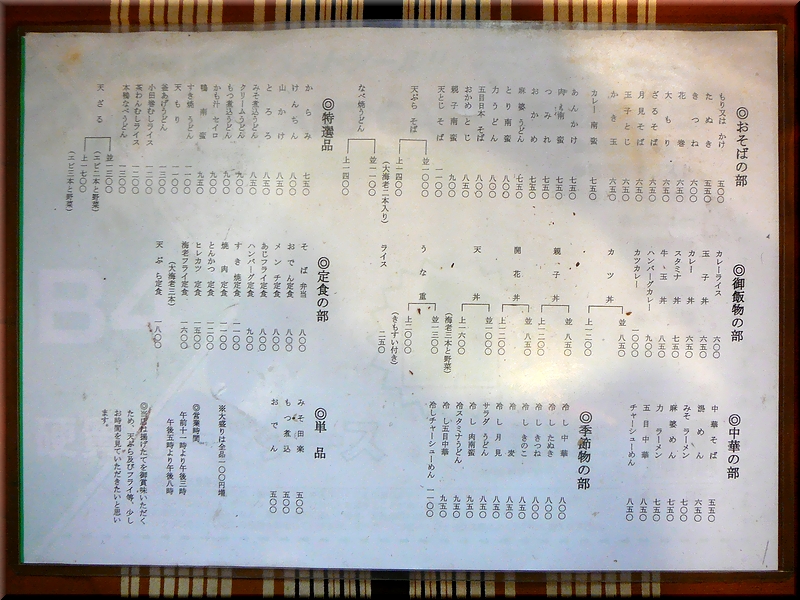 ◎おそばの部
もり又は かけ 五〇〇
たぬき 五五〇
きつね 五五〇
花巻 六〇〇
大もり 六五〇
ざるそば 六五〇
月見そば 六五〇
玉子とじ 六五〇
かき玉 六五〇
カレー南蛮 七五〇
あんかけ 七五〇
肉南蛮 七五〇
つみれ 七五〇
おかめ 七五〇
麻婆うどん 七五〇
とり南蛮 八〇〇
力うどん 八〇〇
五目日本そば 八五〇
おかめとじ 八五〇
親子南蛮 九〇〇
天とじそば 一一〇〇
天ぷらそば
並一〇〇〇
上一四〇〇
(大海老二本入り)
なべ焼うどん
並一一〇〇
上一四〇〇
◎特選品
からみ 七五〇
けんちん 八〇〇
山かけ 八五〇
とろろ 八五〇
みそ煮込うどん 八五〇
クリームうどん 九〇〇
もつ煮込うどん 九〇〇
かも汁セイロ 九五〇
鴨南蛮 九五〇
すき焼うどん 一〇〇〇
天もり 一一〇〇
釜あげうどん 一一〇〇
小田巻むしライス
茶わんむしライス
本格なべうどん
天ざる
並一三〇〇
(エビ二本と野菜)
上一七〇〇
(エビ三本と野菜)
◎御飯物の部
カレーライス 六〇〇
玉子丼 六五〇
カレー丼 六五〇
スタミナ丼 七五〇
牛玉丼 八五〇
ハンバーグカレー 九〇〇
カツカレー 一〇〇〇
カツ丼
並八五〇
上一二〇〇
親子丼
並八五〇
上一二〇〇
開花丼
並八五〇
上一二〇〇
天丼
並一〇〇〇
上一六〇〇
(海老三本と野菜)
うな重
並一三〇〇
上二〇〇〇
(きもすい付き)
ライス 二五〇
◎定食の部
そば弁当 八〇〇
おでん定食 八〇〇
メンチ定食 八〇〇
あじフライ定食 八〇〇
ハンバーグ定食 九〇〇
すき焼定食 一〇〇〇
焼肉定食 一〇〇〇
とんかつ定食
ヒレカツ定食 一五〇〇
海老フライ定食 一六〇〇
(大海老三本)
天ぷら定食 一八〇〇
◎中華の部
中華そば 五五〇
湯めん 六五〇
みそラーメン 七〇〇
麻婆めん 七五〇
力ラーメン 七五〇
五目中華 八五〇
チャーシューめん 八五〇
◎季節物の部
冷し中華 八〇〇
冷したぬき 八〇〇
冷しきつね 八〇〇
冷しきのこ 八五〇
冷麦 八五〇
冷し月見 八五〇
サラダうどん 八五〇
冷し肉南蛮 九五〇
冷スタミナうどん 九五〇
冷し五目中華 九五〇
冷しチャーシューめん 一一〇〇
◎単品
みそ田楽 五〇〇
もつ煮込 五〇〇
おでん 五〇〇
※大盛りは全品一〇〇円増
◎営業時間
午前十一時より午後三時
午後五時より午後八時
◎当店は揚げたてを御賞味いただく
ため、天ぷら及びフライ等、少し
お時間を見ていただきたいと思い
ます。